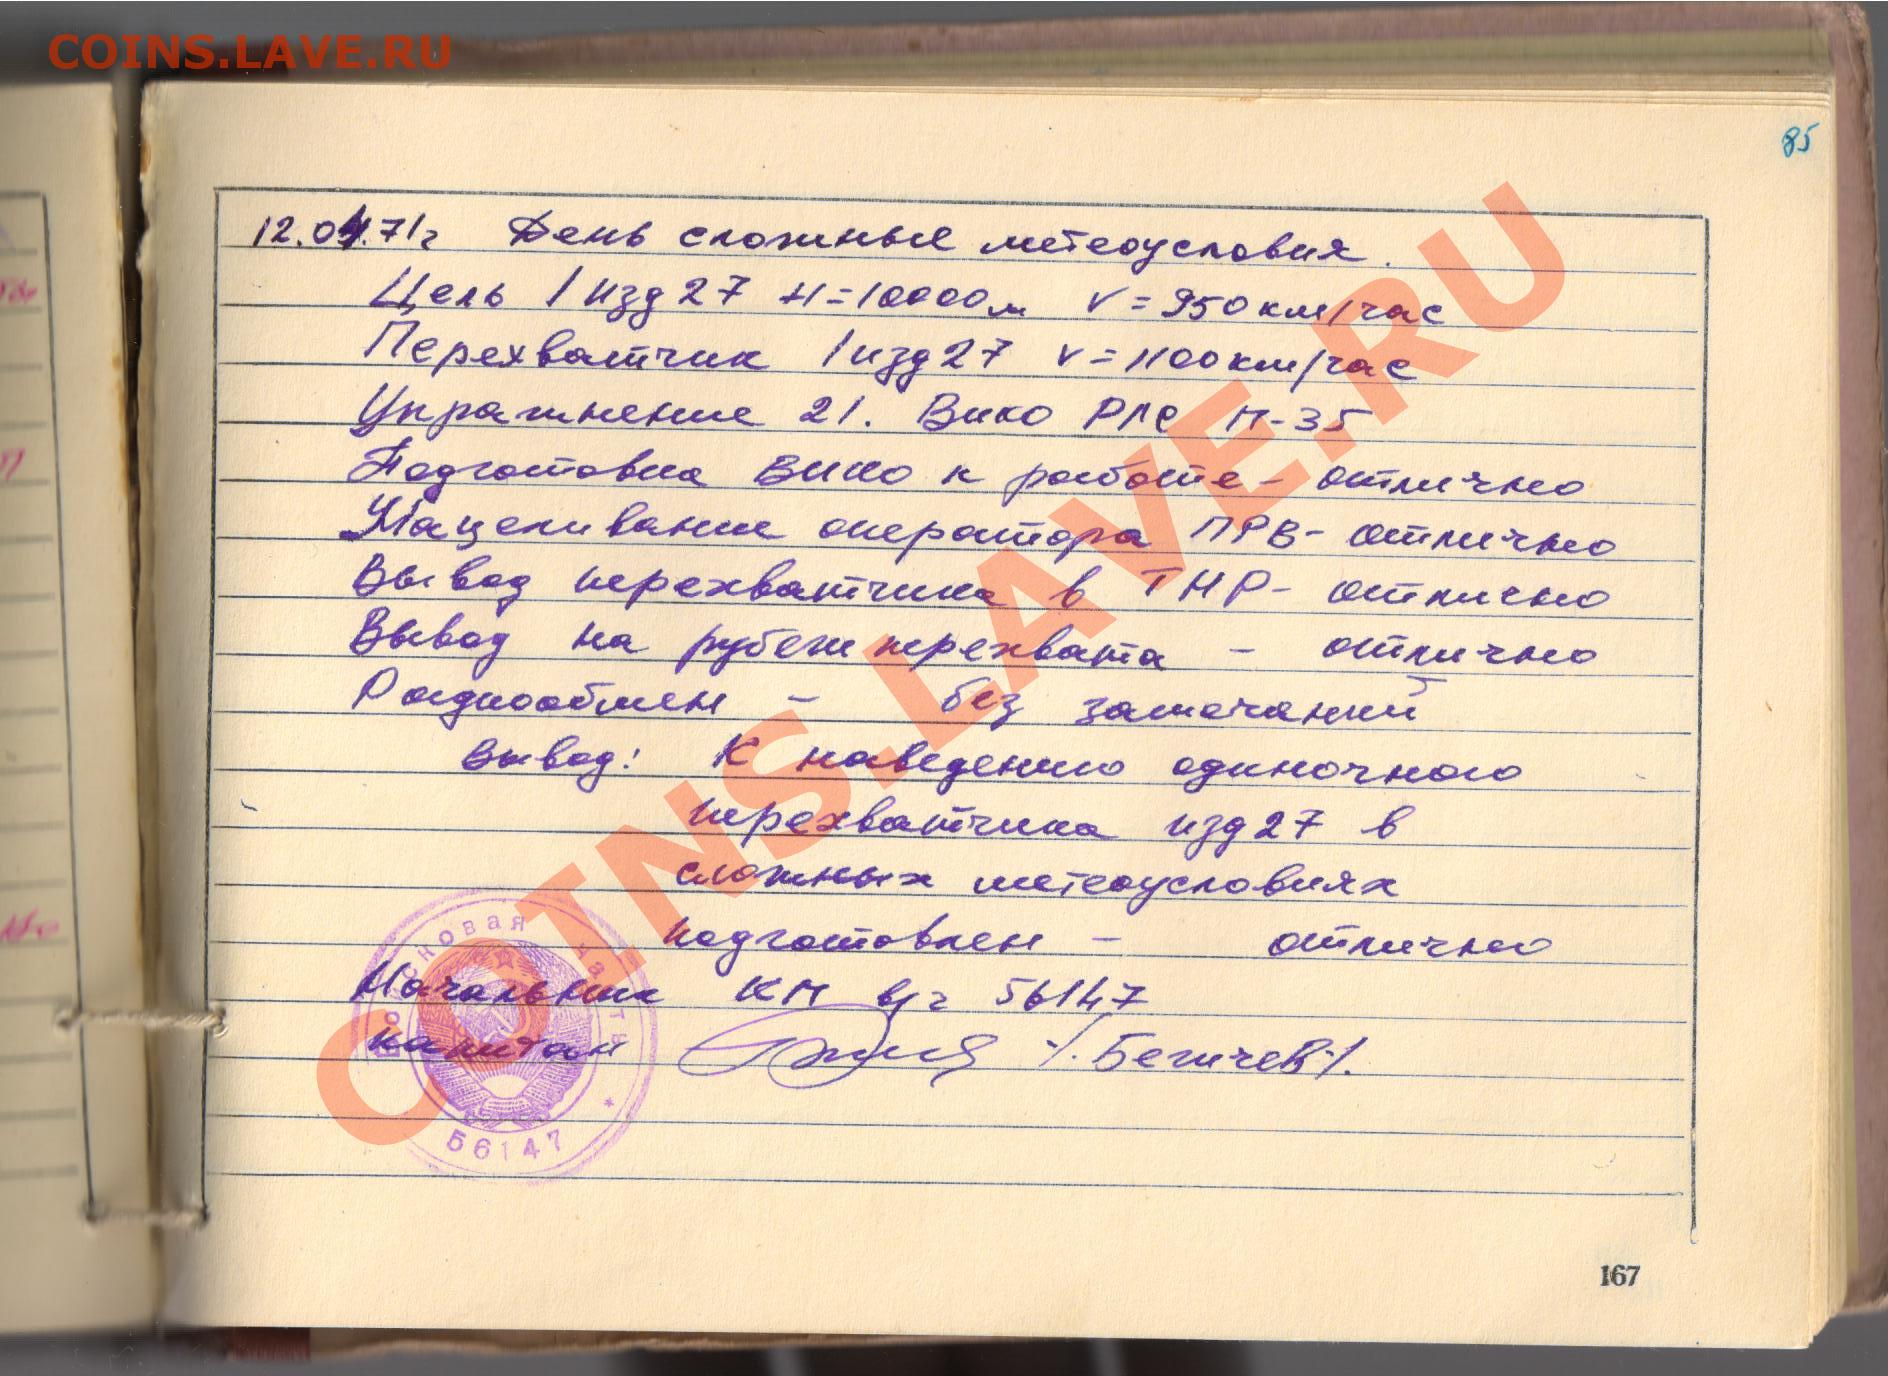 COINS.LAVE.RU
85
12.04.71г День сложные метеоусловия.
Цель 1 изд 27 H=10000м V=950км/час
Перехватчик 1 изд 27 V=1100км/час
Упражнение 21. Вико РЛС П-35
Подготовка ВИКО к работе - отлично
Нацеливание оператора ПРВ - отлично
Вывод перехватчика в ТНР - отлично
Вывод на рубеж перехвата - отлично
Радиообмен - без замечаний
Вывод: К наведению одиночного
перехватчика изд 27 в
сложных метеоусловиях
подготовлен - отлично
Начальник КП в/ч 56147
капитан /Бегичев/.
Войсковая часть * 56147
167
COINS.LAVE.RU